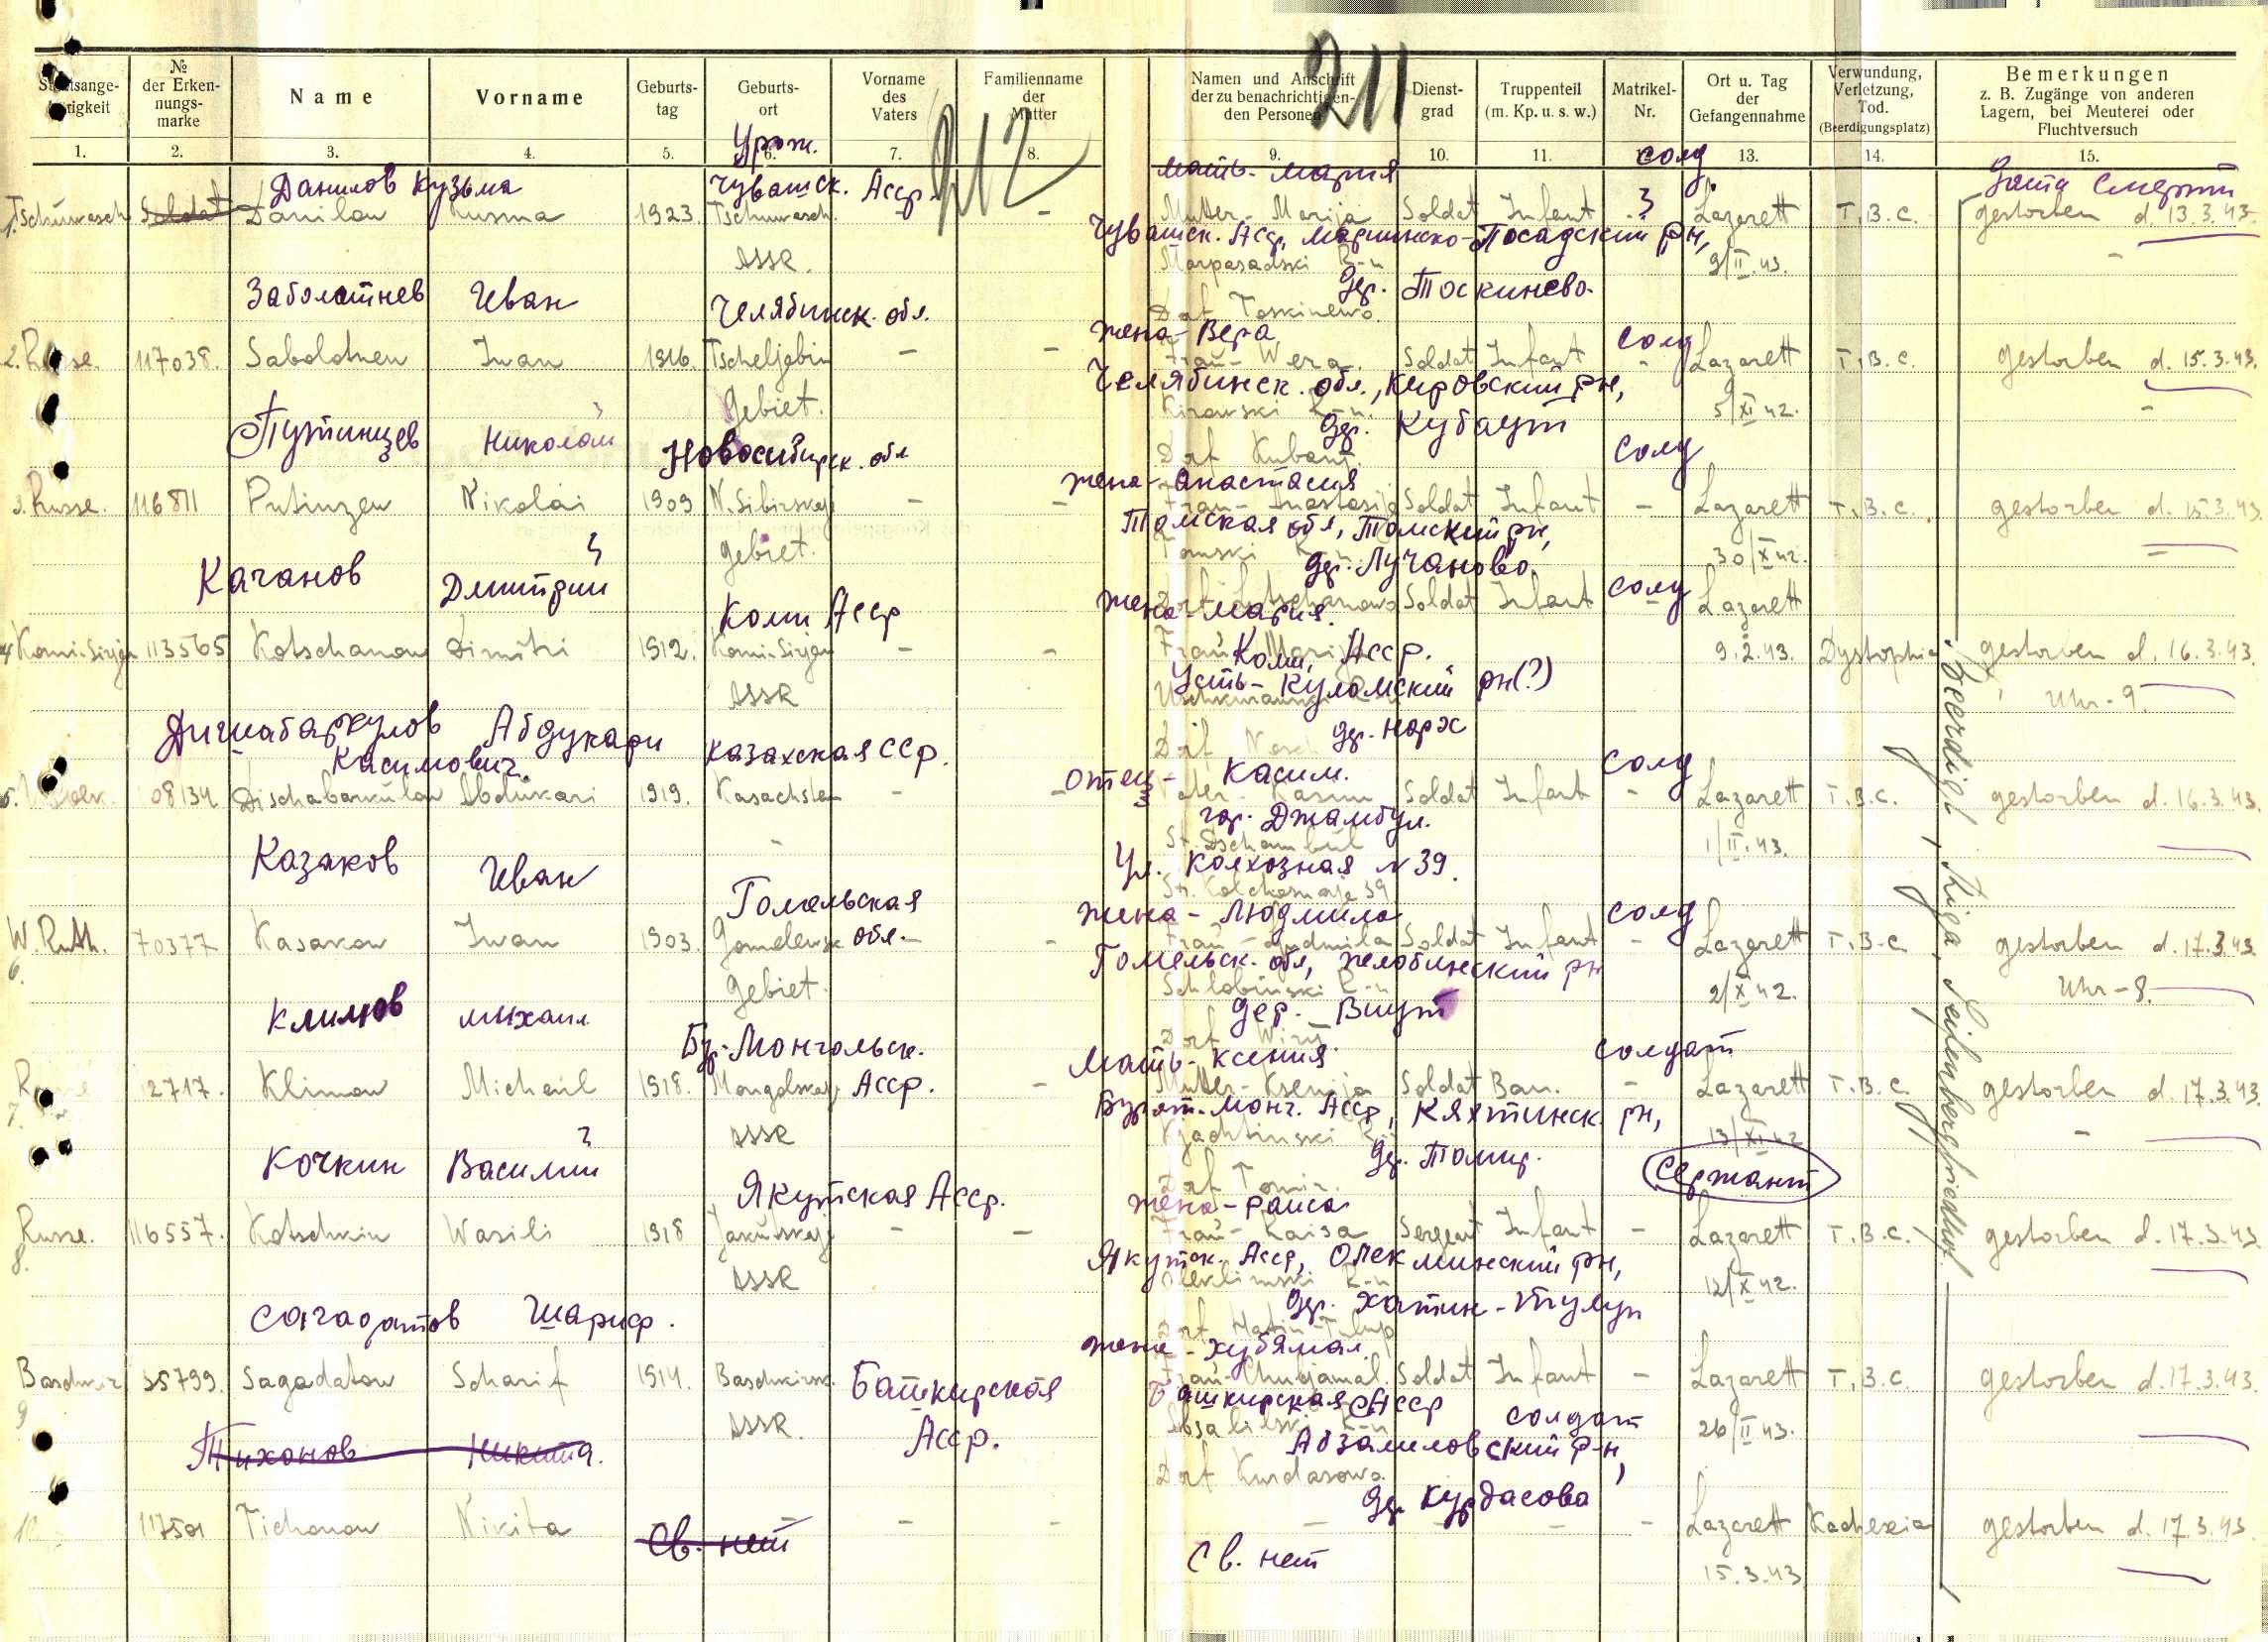 211
212
Staatsange-
hörigkeit
№
der Erken-
nungs-
marke
Name
Vorname
Geburts-
tag
Geburts-
ort
Vorname
des
Vaters
Familienname
der
Mutter
Namen und Anschrift
der zu benachrichtigen-
den Personen
Dienst-
grad
Truppenteil
(m. Kp. u. s. w.)
Matrikel-
Nr.
Ort u. Tag
der
Gefangennahme
Verwundung,
Verletzung,
Tod.
(Beerdigungsplatz)
Bemerkungen
z. B. Zugänge von anderen
Lagern, bei Meuterei oder
Fluchtversuch
1. 2. 3. 4. 5. 6. 7. 8. 9. 10. 11. 12. 13. 14. 15.
Урож. солд
Данилов Кузьма Чувашск. Асср. мать-Мария Дата смерти
1. Tschuwasch Soldat Danilow Kusma 1923. Tschuwasch. - Mutter-Marija Soldat Infant - Lazarett T.B.C. gestorben d. 13.3.43.
Чувашск. Асср, Мариинско-Посадский рн,
ASSR. Marposadski R-n 9/II.43. -
дер. Тоскинево.
Заболотнев Иван Челябинск. обл. Dorf Toskinewo.
жена-Вера солд
2. Russe. 117038. Sabolotnew Iwan 1916. Tscheljabin - - Frau-Wera. Soldat Infant - Lazarett T.B.C. gestorben d. 15.3.43.
Челябинск. обл., Кировский рн,
Gebiet. Kirowski R-n. 5/XI 42. -
дер. Кубаут
Путинцев Николай Новосибирск. обл Dorf Kubaut. солд
жена-Анастасия
3. Russe. 116811 Putinzew Nikolai 1909 N.Sibirskaj - - Frau-Anastasija Soldat Infant - Lazarett T.B.C. gestorben d. 15.3.43.
Томская обл, Томский рн,
Gebiet. Tomski R-n 30/X 42. -
дер. Лучаново.
Качанов Дмитрий Коми Асср Dorf Lutschanowo Soldat Infant солд Lazarett
жена-Мария.
4. Komi-Sirjan 113565 Kotschanow Dimitri 1912. Komi-Sirjan - - Frau Marija 9.2.43. Dystophia gestorben d. 16.3.43.
Коми, Асср.
Усть-Куломский рн(?)
ASSR Uhr-9.
дер. Нарж
Дишабаркулов Абдукари Казахская ССР. Dorf
Касимович. отец- Касим. солд
5. 08134 Dischabarkulow Abdukari 1919. Kasachstan - - Vater-Kasim Soldat Infant - Lazarett T.B.C. gestorben d. 16.3.43.
гор. Джамбул.
- St. Dschambul 1/II.43.
ул. Колхозная №39.
Казаков Иван Гомельская Str. Kolchosnaja 39
жена-Людмила солд
6. W. Ruth. 70377 Kasakow Iwan 1903. Gomelewsk обл. - Frau-Ludmila Soldat Infant - Lazarett T.B.C gestorben d. 17.3.43
Гомельск. обл, Желобинский рн
Gebiet. Schlobinski R-n 2/X 42. Uhr-8.
дер. Вишт
Климов Михаил Бур-Монгольск. Dorf
мать-Ксения. солдат
7. 2717. Klimow Michail 1918. Mongolskaj Асср. - Mutter-Ksenija Soldat Bau. - Lazarett T.B.C. gestorben d. 17.3.43.
Бурят-Монг. Асср, Кяхтинск. рн,
ASSR Kjachtinski 13/XI 42 -
дер. Томир.
Кочкин Василий Якутская Асср. Dorf Tomir. Сержант
жена-Раиса
8. Russe. 116557. Kotschkin Wasili 1918 Jakutskaj - - Frau-Raisa Sergeant Infant - Lazarett T.B.C. gestorben d. 17.3.43.
Якутск. Асср, Олекминский рн,
ASSR Olekminski R-n 12/X 42.
дер. Хатин-Тулуп
Сагадатов Шариф. Dorf Hatin-Tulup
жена-Хубямал
9 Baschkir 35799. Sagadatow Scharif 1914. Baschkirsk. Башкирская Frau-Chubjamal. Soldat Infant - Lazarett T.B.C. gestorben d. 17.3.43.
Башкирская Асср солдат
ASSR. Асср. Absalilski R-n 26/II 43.
Абзалиловский р-н,
Тихонов Никита. Dorf Kurdasowo.
дер. Курдасова
10 117501 Tichonow Nikita - - - - - - - Lazarett Kachexia gestorben d. 17.3.43.
Св. нет Св. нет
15.3.43
Beerdigt, Riga,